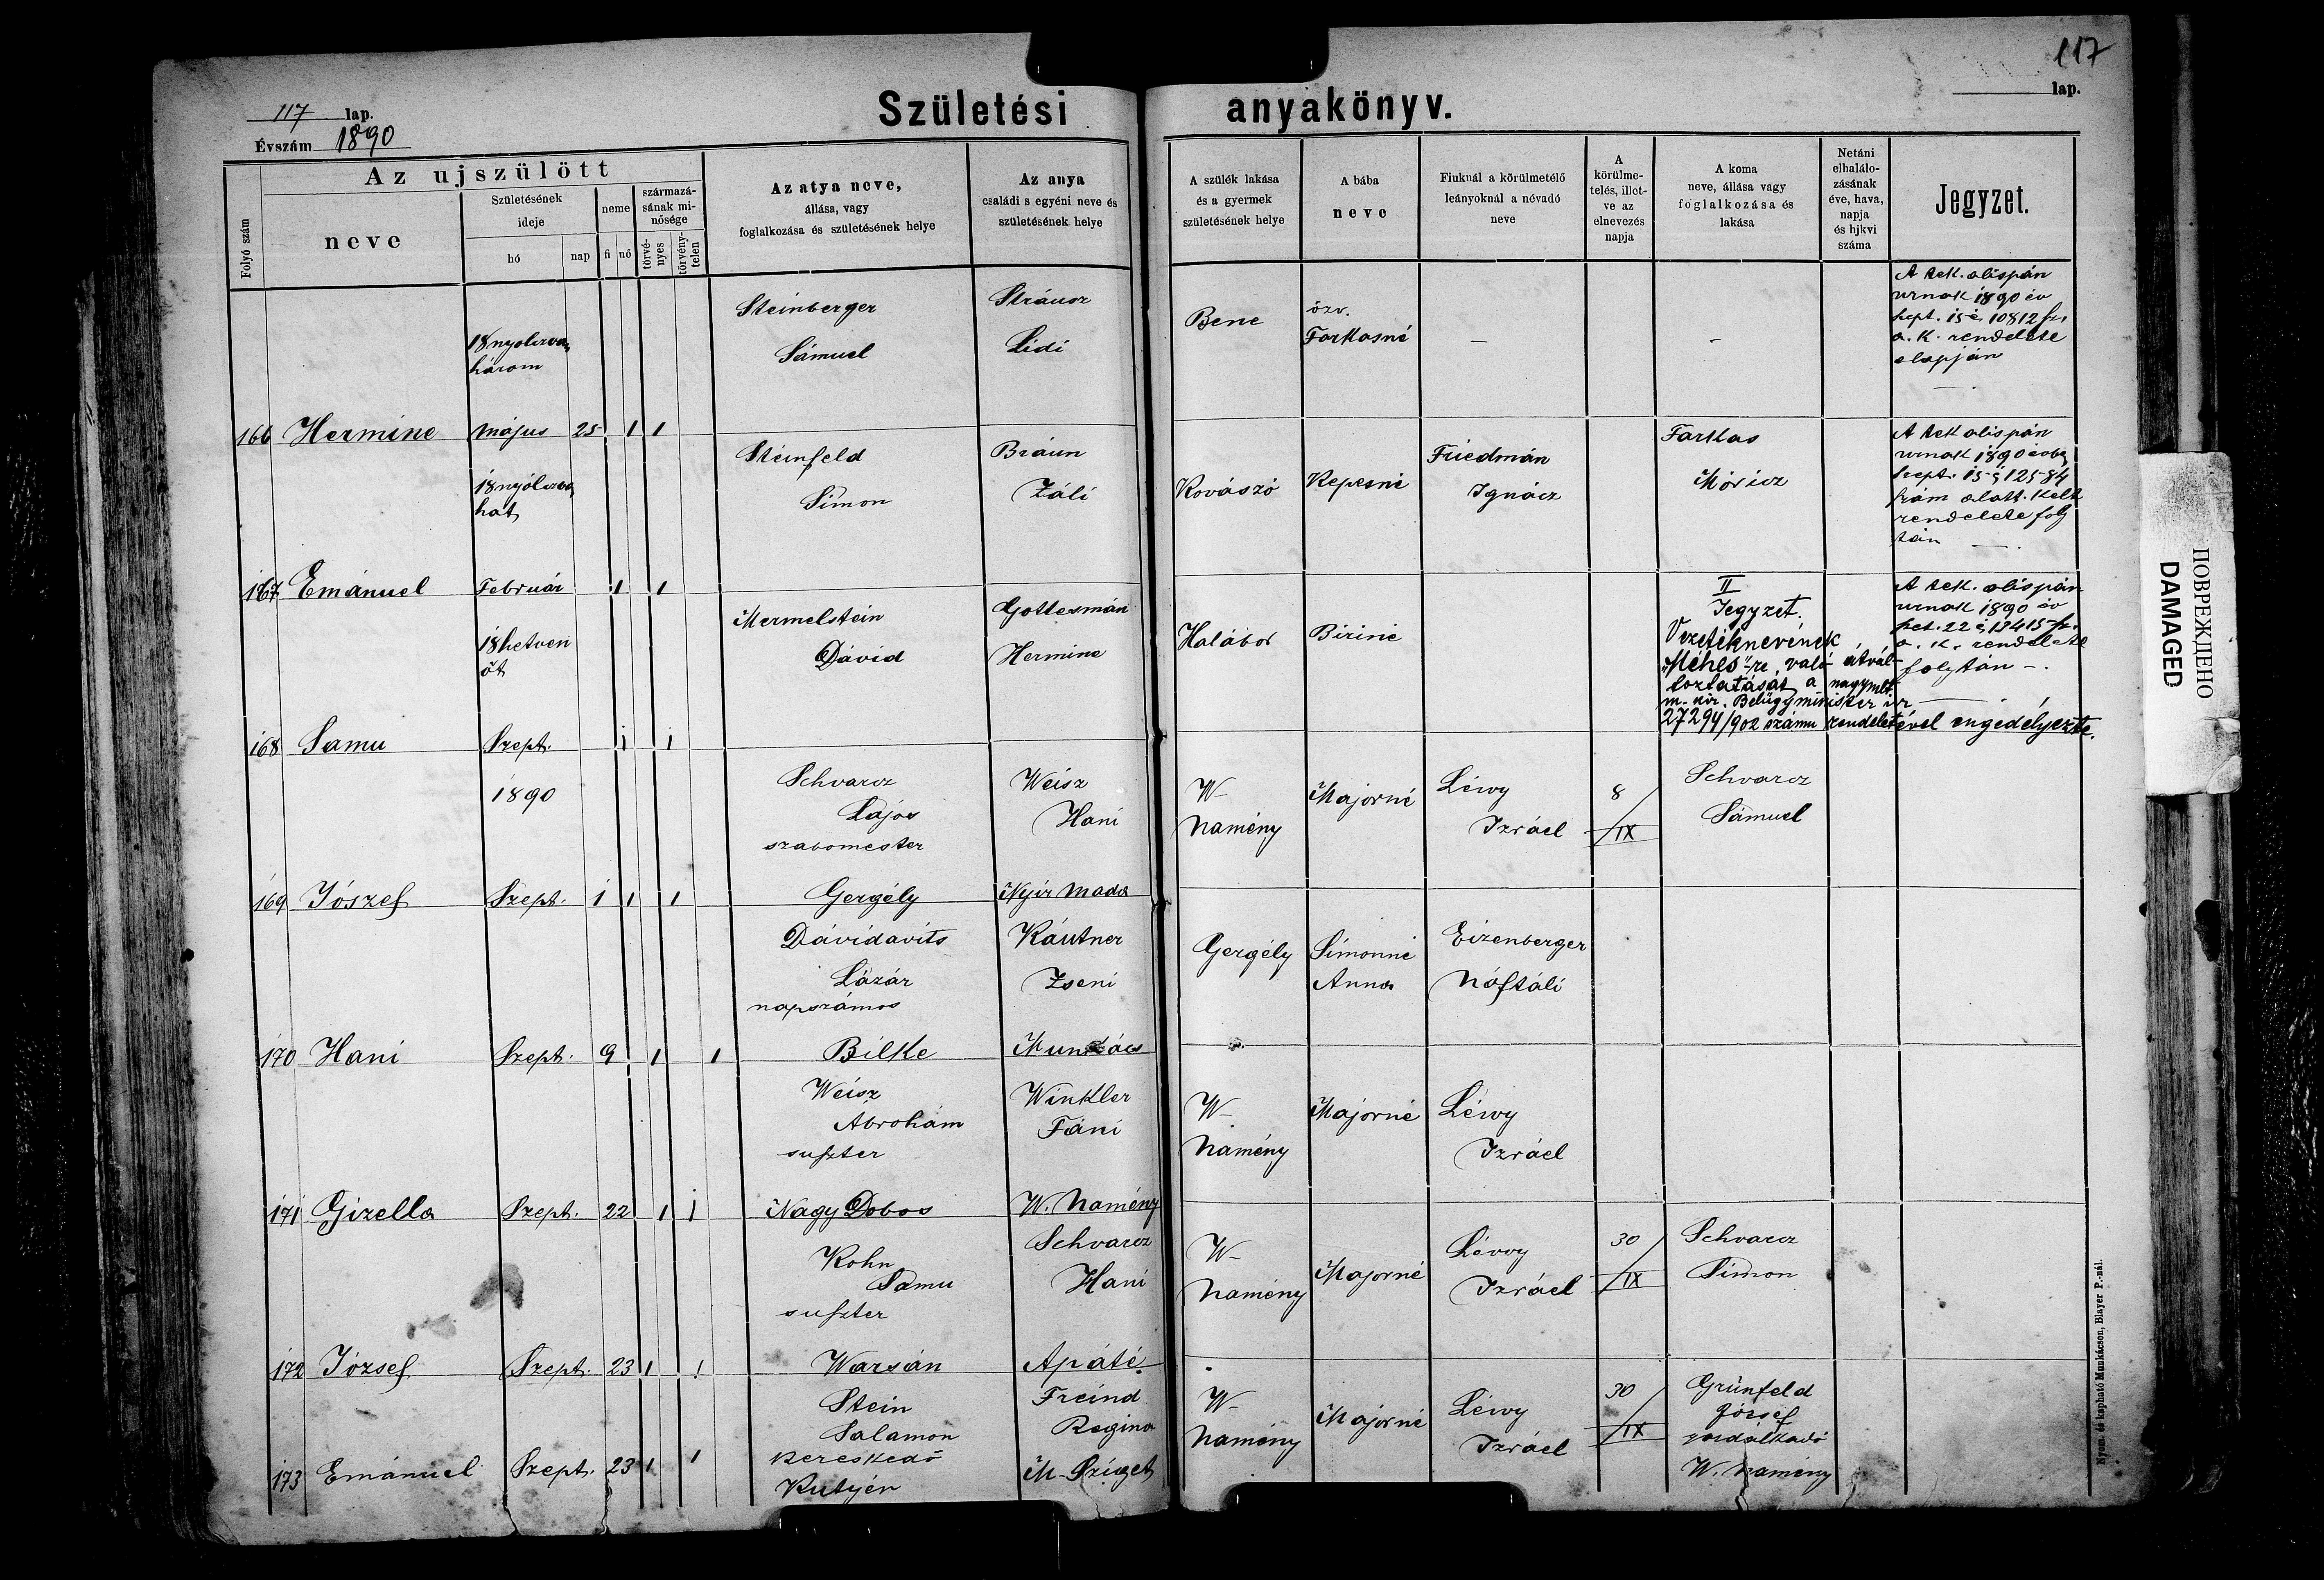 117 lap.
Évszám 1890
Születési anyakönyv.
117
lap.
Folyó szám
Az ujszülött
neve
Születésének
ideje
hó
nap
neme
fi
nő
származá-
sának mi-
nősége
törvé-
nyes
törvény-
telen
Az atya neve,
állása, vagy
foglalkozása és születésének helye
Az anya
családi s egyéni neve és
születésének helye
A szülék lakása
és a gyermek
születésének helye
A bába
neve
Fiuknál a körülmetélő
leányoknál a névadó
neve
A
körülme-
telés, illet-
ve az
elnevezés
napja
A koma
neve, állása vagy
foglalkozása és
lakása
Netáni
elhalálo-
zásának
éve, hava,
napja
és hjkvi
száma
Jegyzet.
166 Hermine
18nyolczvan
három
május 25 1 1
Steinberger
Sámuel
Stráusz
Lidi
Bene
özv.
Farkasné
—
—
A tek. alispán
urnak 1890 év
sept. 15-é 10812 sz.
a. k. rendelete
alapján
—.
167 Emánuel
18nyólczvan
hat
Február 1 1
Steinfeld
Simon
Bráun
Záli
Kovászó
Kepesné
Friedmán
Ignácz
Farkas
Móricz
A tek alispán
urnak 1890 évbe
Szept. 15-é 12584
szám alatt. kelt
rendelete foly
tán —.
168 Samu
18hetven
öt
Szept. 1 1
Mermelstein
Dávid
Gottesmán
Hermine
Halábor
Biriné
II
Jegyzet.
Vezetéknevének
"Méhes"-re való átvál-
toztatását a nagymlt.
m. kir. Belügyminister úr
27294/902 számu rendeletével engedélyezte.
A tek. alispán
urnak 1890 év
sept. 22 é 13415 sz.
a. k. rendelete
folytán —.
169 József
1890
Szept. 1 1 1
Schvarcz
Lajos
szabomester
Gergély
Weisz
Hani
Nyir Mada
W-
Namény
Majorné
Léwy
Izráel
8
/IX
Schvarcz
Sámuel
170 Hani
Szept. 9 1 1
Dávidavits
Lázár
napszámos
Bilke
Káutner
Zseni
Munkács
Gergély
Simonné
Anna
Eizenberger
Náftáli
171 Gizella
Szept. 22 1 1
Weisz
Abrohám
suszter
Nagy Dobos
Winkler
Fáni
W. Namény
W-
Namény
Majorné
Léwy
Izráel
172 József
Szept. 23 1 1
Kohn
Samu
suszter
Warsán
Schvarcz
Hani
Apáté
W-
Namény
Majorné
Lévvy
Izráel
30
/IX
Schvarcz
Simon
173 Emánuel
Szept. 23 1 1
Stein
Salamon
kereskedő
Kutyén
Freind
Regina
M-Sziget
W-
Namény
Majorné
Léwy
Izráel
30
/IX
Grünfeld
József
W. Namény
Nyom. és kapható Munkácson, Blayer P.-nál.
ПОВРЕЖДЕНО
DAMAGED